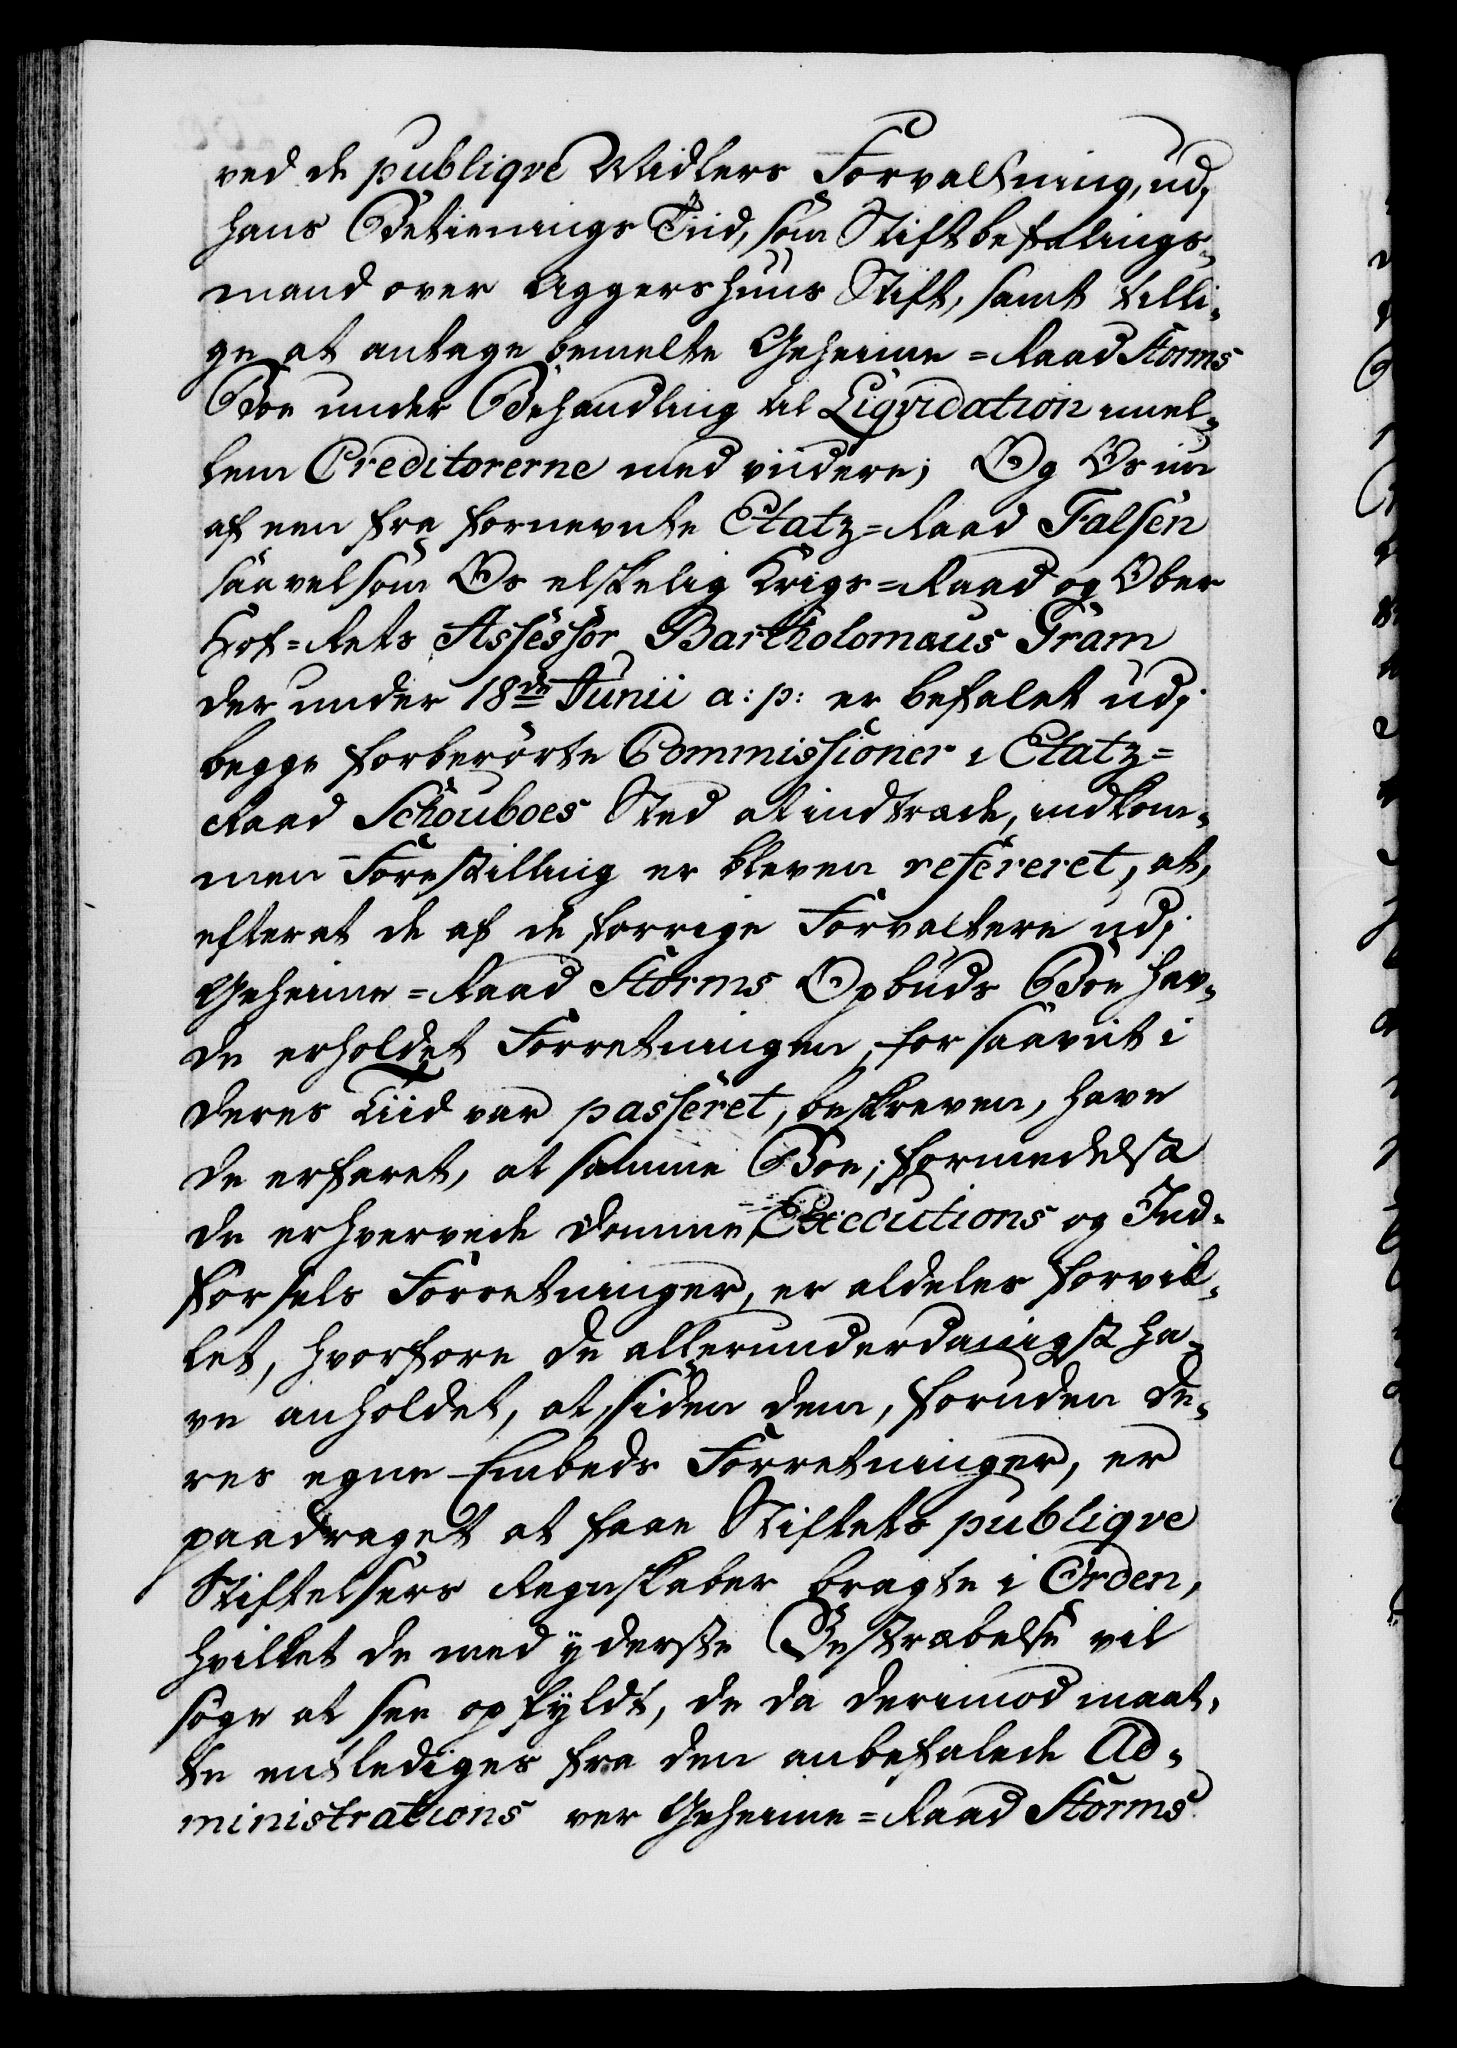 ved de publiqve Midlers Forvaltning, udj
hans Betienings Tiid, som Stiftbefalings-
mand over Aggershuus Stift, samt tilli-
ge at antage bemelte Geheime=Raad Storms
Boe under Behandling til Liqvidation imel-
lem Creditorerne med viidere; Og Os nu
af een fra fornevnte Etatz=Raad Falsen
saavelsom Os elskelig Krigs=Raad og Ober
Hof=Rets Assessor Bartholomæus Gram
der under 18de Junii a: p: er befalet udj
begge forberørte Commissioner i Etatz=
Raad Schouboes Sted at indtræde, indkom-
men Forestilling er bleven refereret, at,
efterat de af de forrige Forvaltere udj
Geheime=Raad Storms Opbuds Boe hav-
de erholdet Forretningen, for saavit i
deres Tiid var passeret, beskreven, have
de erfaret, at samme Boe, formedelst
de erhvervede Domme, Executions og Ind-
førsels Forretninger, er aldeles forvik-
let, hvorfore de allerunderdanigst ha-
ve anholdet, at, siden dem, foruden de-
res egne Embeds Forretninger, er
paadraget at faae Stiftets publiqve
Stiftelsers Regnskaber bragte i Orden,
hvilket de med yderste Bestræbelse vil
søge at see opfyldt, de da derimod maat-
te entlediges fra den anbefalede Ad-
ministrations ver Geheime=Raad Storms